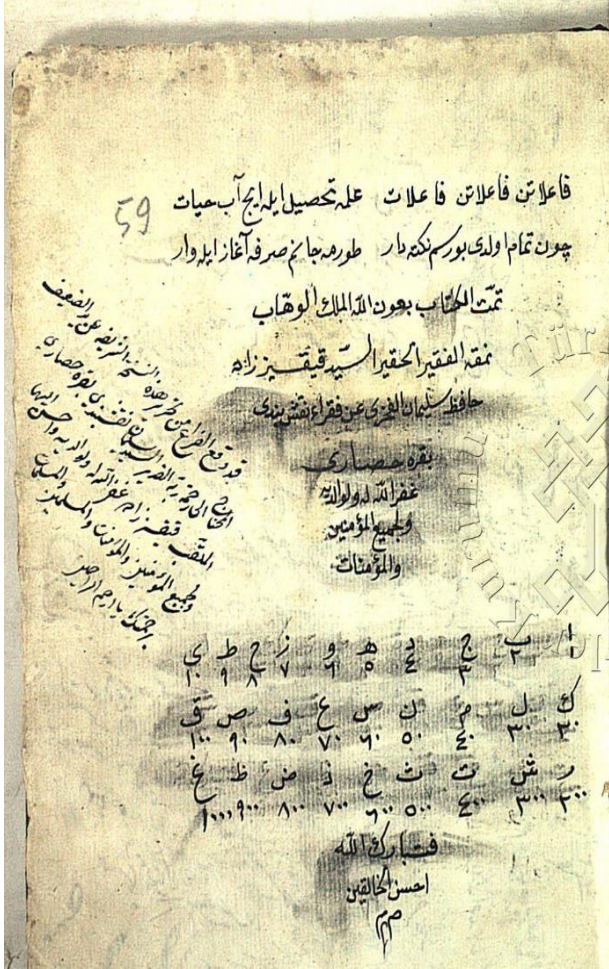 فاعلاتن فاعلاتن فاعلات علمه تحصيل ايله ايچ آب حيات
59
چون تمام اولدى بو رسم نكته دار طورمه جانم صرفه آغاز ايله وار
تمت الكتاب بعون الله الملك الوهاب
نمقه الفقير الحقير السيد قيقـيز زاده
حافظ سليمان الفخرى عن فقراء نقشبندى
بقره حصارى
غفر الله له ولوالديه
ولجميع المؤمنين
والمؤمنات
قد وقع الفراغ من تحرير هذه النسخة الشريفة عن يد الضعيف
المحتاج الى رحمة ربه القدير السيد سليمان نقشبندى بقره حصارى
الملقب زاده غفر الله له ولوالديه واحسن اليهما
ولجميع المؤمنين والمؤمنات والمسلمين والمسلمات
برحمتك يا ارحم الراحمين
ا ب ج د ه و ز ح ط ى
١ ٢ ٣ ٤ ٥ ٦ ٧ ٨ ٩ ١٠
ك ل م ن س ع ف ص ق
٢٠ ٣٠ ٤٠ ٥٠ ٦٠ ٧٠ ٨٠ ٩٠ ١٠٠
ر ش ت ث خ ذ ض ظ غ
٢٠٠ ٣٠٠ ٤٠٠ ٥٠٠ ٦٠٠ ٧٠٠ ٨٠٠ ٩٠٠ ١٠٠٠
فتبارك الله
احسن الخالقين